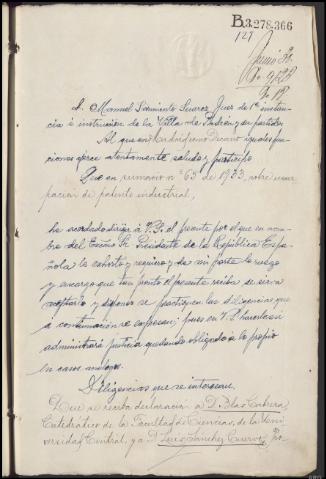 B.3.278.366
127
Junio 30
D. Manuel Sarmiento Suarez Juez de 1ª instan
cia é instruccion de la Villa de Padrón y su partido
Al que en Madrid fuere Decano iguales fun
ciones ejerce atentamente saludo y participo
Que en sumario nº 63 de 1933, sobre usur
pación de patente industrial,
he acordado dirigir á V.S. el presente por el que en nom
bre del Excmo Sr. Presidente de la República Espa
ñola le exhorto y requiero y de mi parte le ruego
y encargo que tan pronto el presente reciba se sirva
aceptarlo y disponer se practiquen las diligencias que
á continuacion se expresan; pues en V.S. hacerlo así
administrará justicia quedando obligado á lo propio
en casos analogos.
Diligencias que se interesan.
Que se reciba declaración a D. Blas Cabrera,
Catedrático de la Facultad de Ciencias, de la Uni
versidad Central, y a D. Luis Sánchez Cuervo, Pro